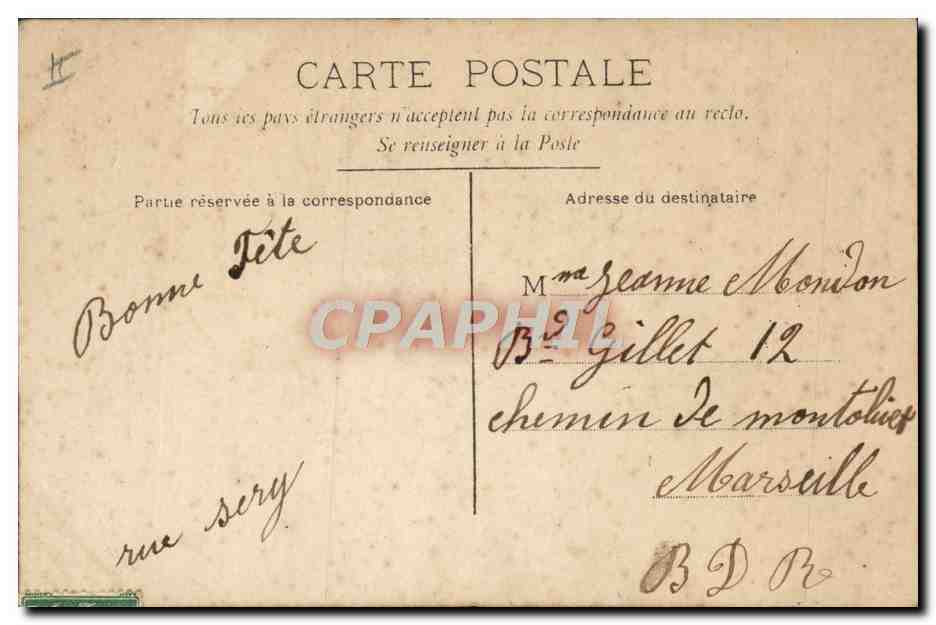 CARTE POSTALE
Tous les pays étrangers n'acceptent pas la correspondance au recto.
Se renseigner à la Poste
Partie réservée à la correspondance
Adresse du destinataire
Bonne Fête
rue sery
Mme Jeanne Moudon
Bd Gillet 12
chemin de montolivet
Marseille
B D R
CPAPHIL